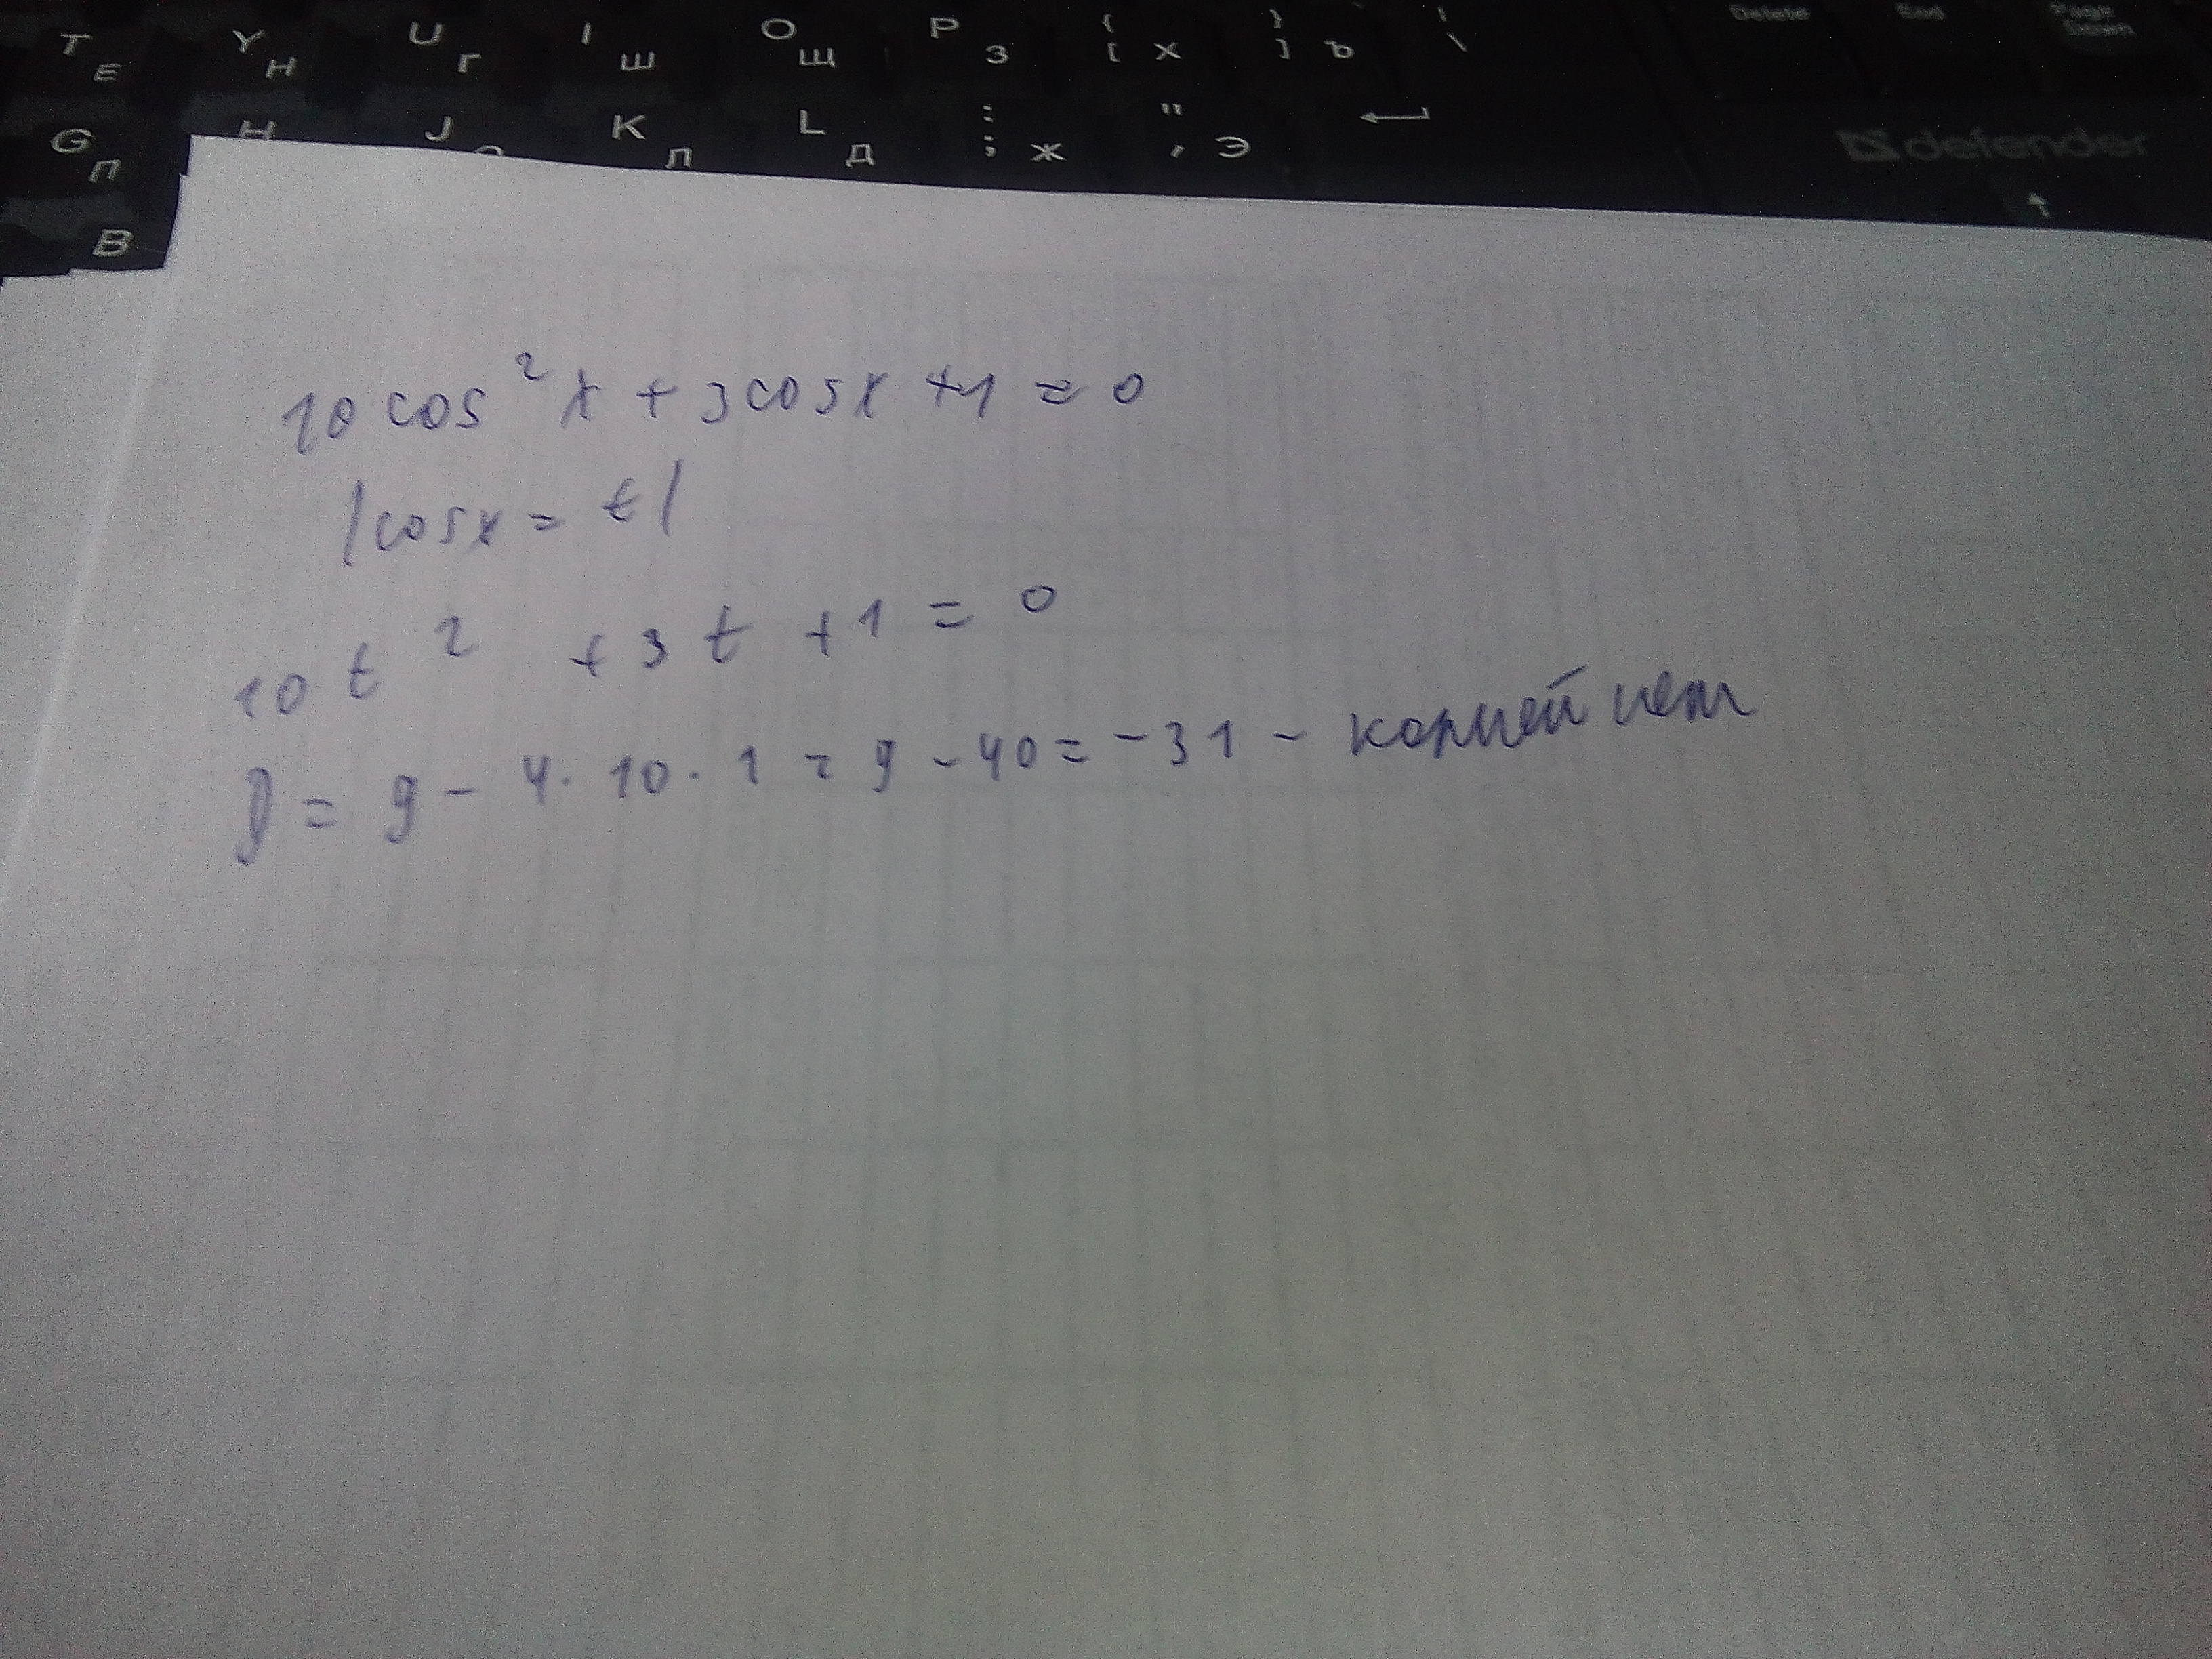 T E Y H U Г I Ш O Щ P З { [ Х } ] Ъ | \ Delete End Page Down
G П H J K Л L Д : ; Ж " ' Э defender
B
10 cos² x + 3 cos x + 1 = 0
| cos x = t |
10 t² + 3 t + 1 = 0
D = 9 - 4 · 10 · 1 = 9 - 40 = - 31 - корней нет